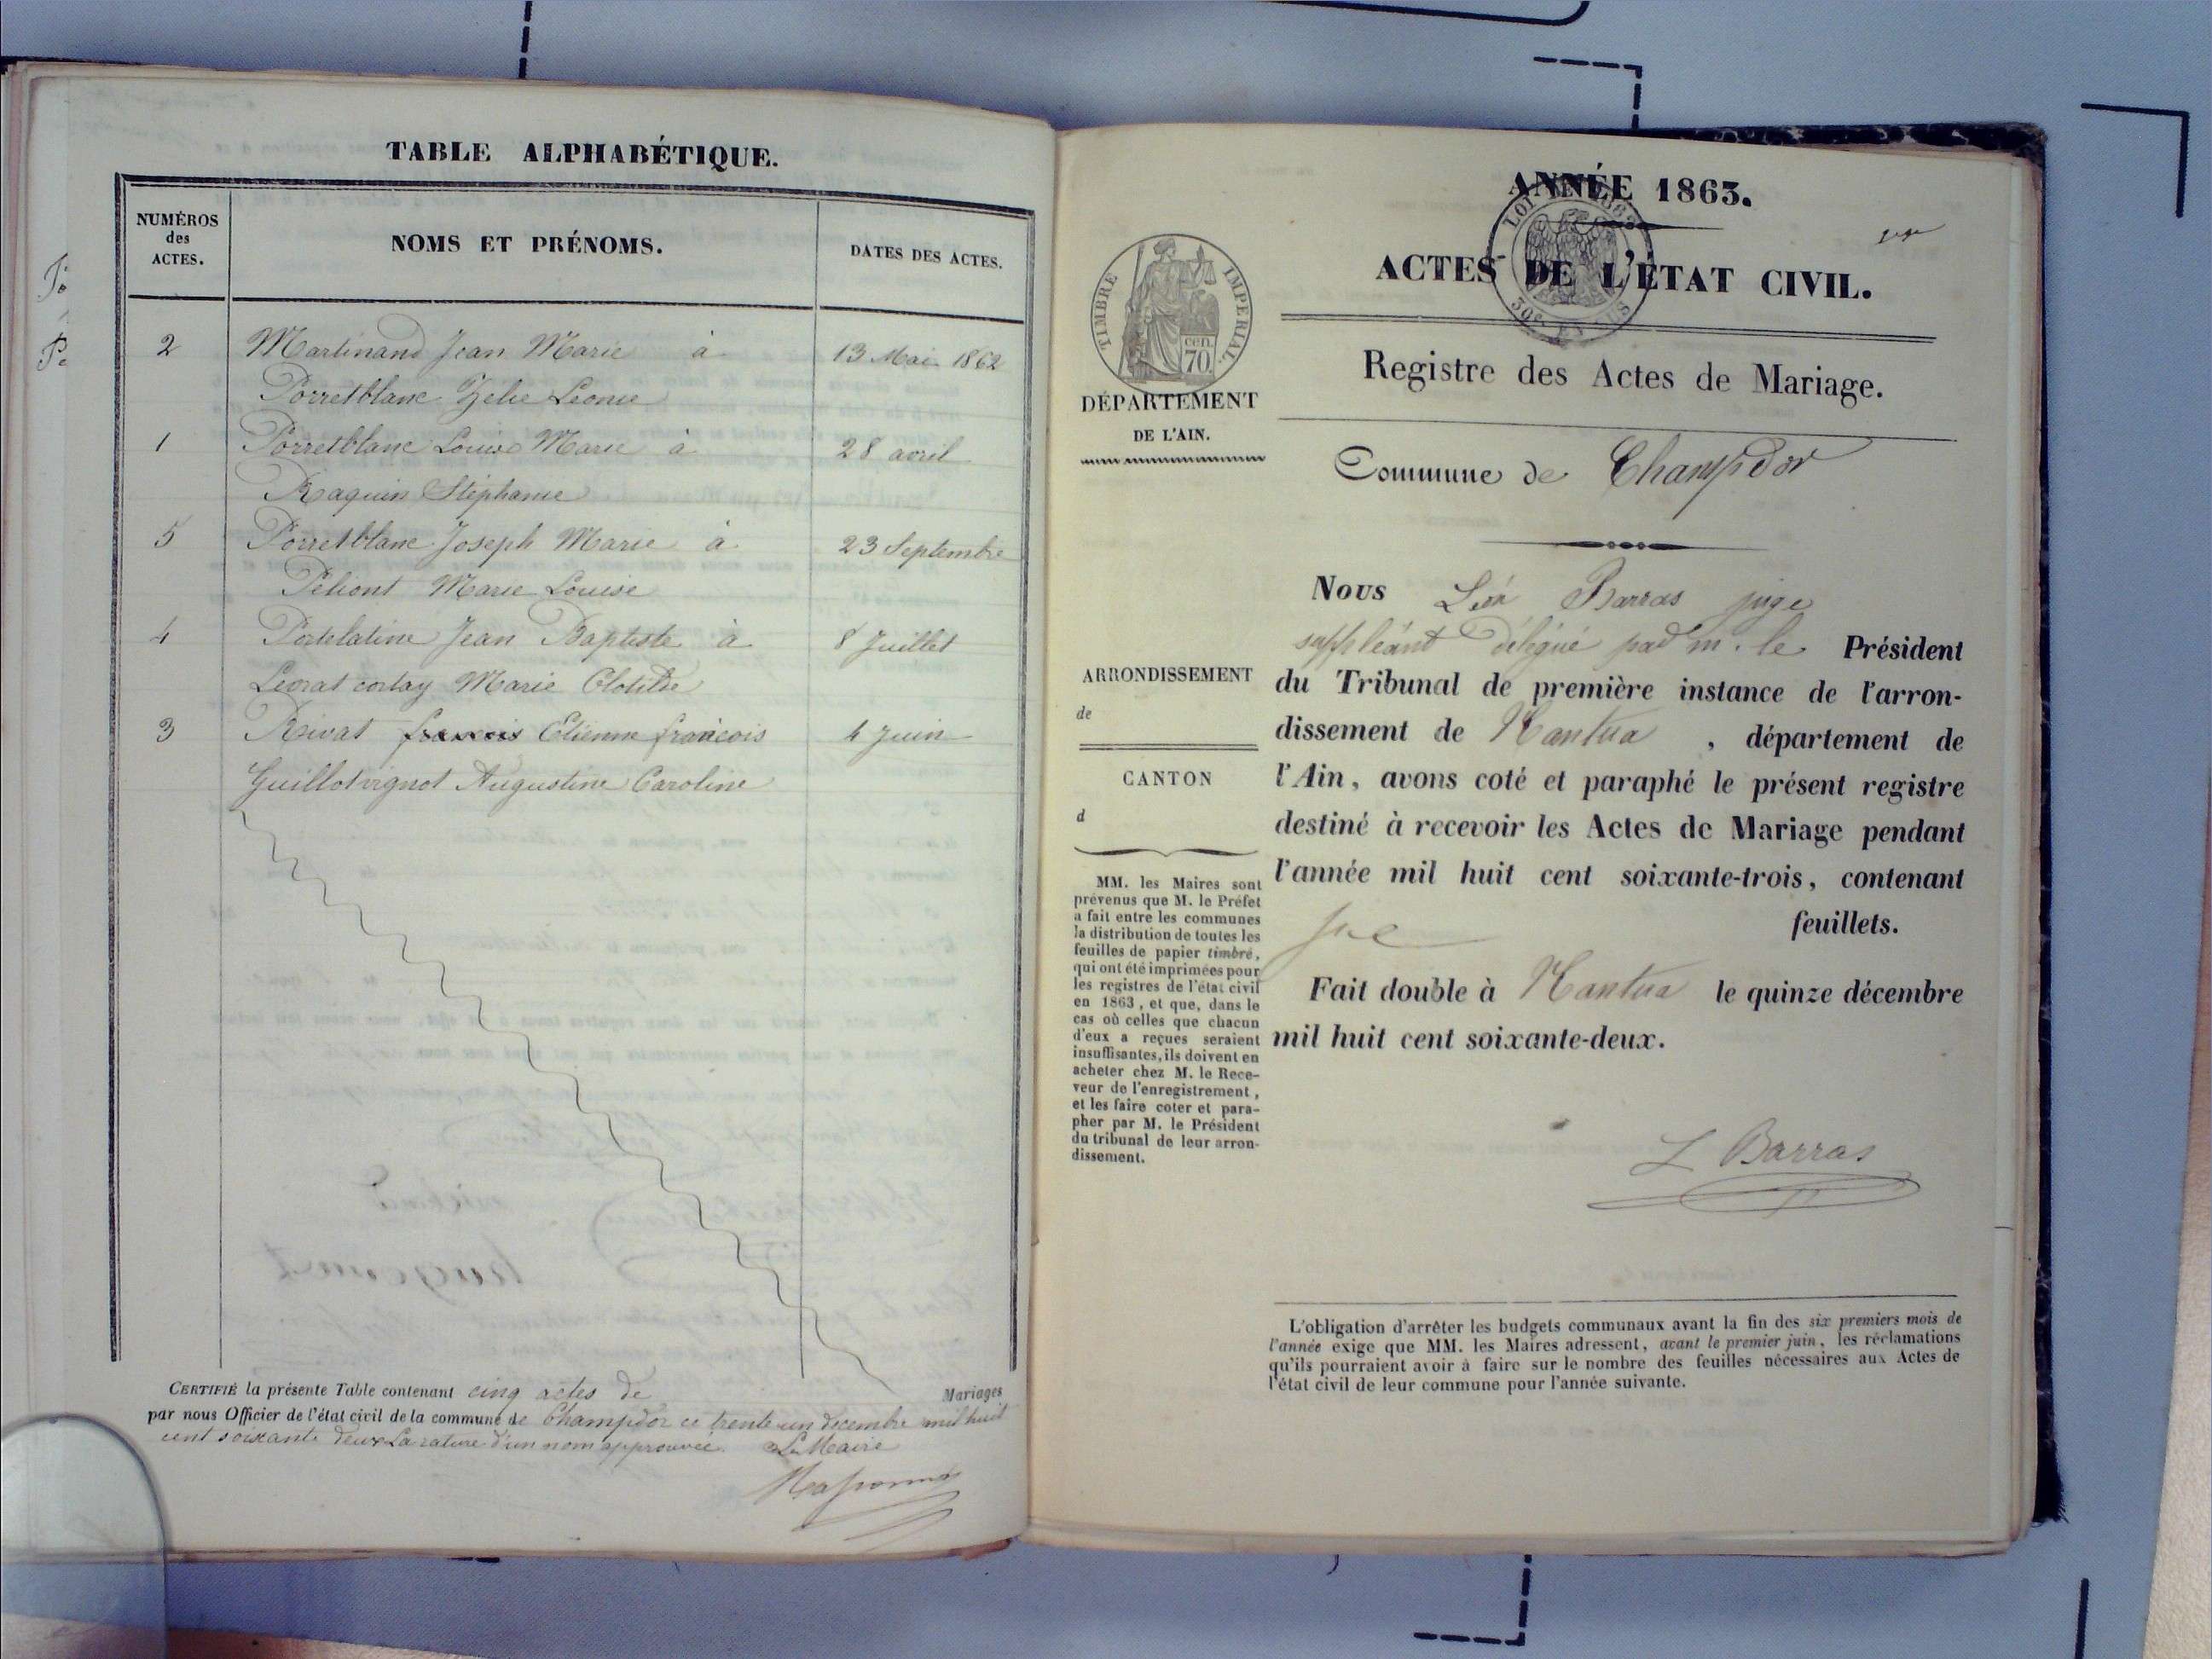 TABLE ALPHABÉTIQUE.
NUMÉROS
des
ACTES.
NOMS ET PRÉNOMS.
DATES DES ACTES.
2 Martinand Jean Marie à 13 Mai 1862
Porretblanc Zelie Leonie
1 Porretblanc Louis Marie à 28 avril
Raquin Stéphanie
5 Porretblanc Joseph Marie à 23 Septembre
Peliont Marie Louise
4 Portelatine Jean Baptiste à 8 Juillet
Levrat cortay Marie Clotilde
3 Rivat francois Etienne francois 4 Juin
Guillotvignot Augustine Caroline
CERTIFIÉ la présente Table contenant cinq actes de Mariages
par nous Officier de l'état civil de la commune de Champdor ce trente un decembre mil huit
cent soixante deux La rature d'un nom approuvée. Le Maire
ANNÉE 1863.
ACTES DE L'ÉTAT CIVIL.
Registre des Actes de Mariage.
Commune de Champdor
TIMBRE IMPERIAL
cen.
70
DÉPARTEMENT
DE L'AIN.
ARRONDISSEMENT
de
CANTON
d
MM. les Maires sont
prévenus que M. le Préfet
a fait entre les communes
la distribution de toutes les
feuilles de papier timbré,
qui ont été imprimées pour
les registres de l'état civil
en 1863, et que, dans le
cas où celles que chacun
d'eux a reçues seraient
insuffisantes, ils doivent en
acheter chez M. le Rece-
veur de l'enregistrement,
et les faire coter et para-
pher par M. le Président
du tribunal de leur arron-
dissement.
Nous Léon Barras juge
suppléant délégué par m. le Président
du Tribunal de première instance de l'arron-
dissement de Nantua , département de
l'Ain, avons coté et paraphé le présent registre
destiné à recevoir les Actes de Mariage pendant
l'année mil huit cent soixante-trois, contenant
feuillets.
Fait double à Nantua le quinze décembre
mil huit cent soixante-deux.
L Barras
L'obligation d'arrêter les budgets communaux avant la fin des six premiers mois de
l'année exige que MM. les Maires adressent, avant le premier juin, les réclamations
qu'ils pourraient avoir à faire sur le nombre des feuilles nécessaires aux Actes de
l'état civil de leur commune pour l'année suivante.